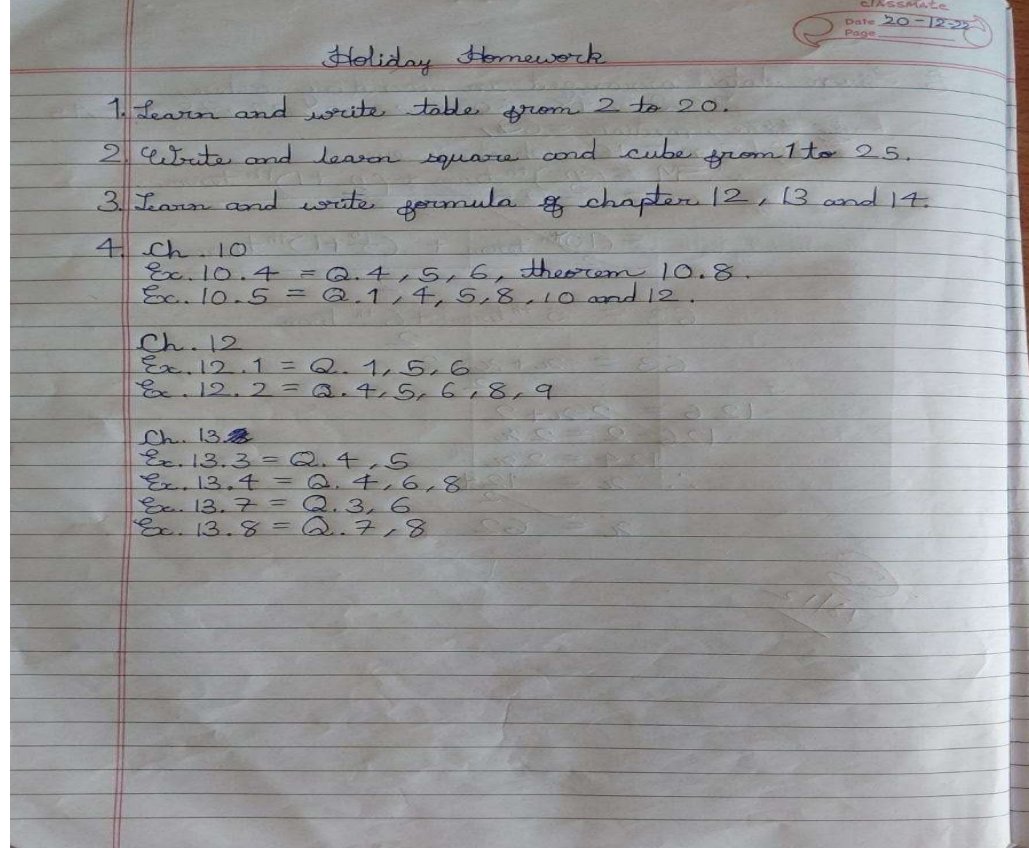 classmate
Date 20-12-22
Page
Holiday Homework
1. Learn and write table from 2 to 20.
2. Write and learn square and cube from 1 to 25.
3. Learn and write formula of chapter 12, 13 and 14.
4. Ch. 10
Ex. 10.4 = Q.4, 5, 6, theorem 10.8.
Ex. 10.5 = Q.1, 4, 5, 8, 10 and 12.
Ch. 12
Ex. 12.1 = Q. 1, 5, 6
Ex. 12.2 = Q. 4, 5, 6, 8, 9
Ch. 13.
Ex. 13.3 = Q. 4, 5
Ex. 13.4 = Q. 4, 6, 8
Ex. 13.7 = Q. 3, 6
Ex. 13.8 = Q. 7, 8